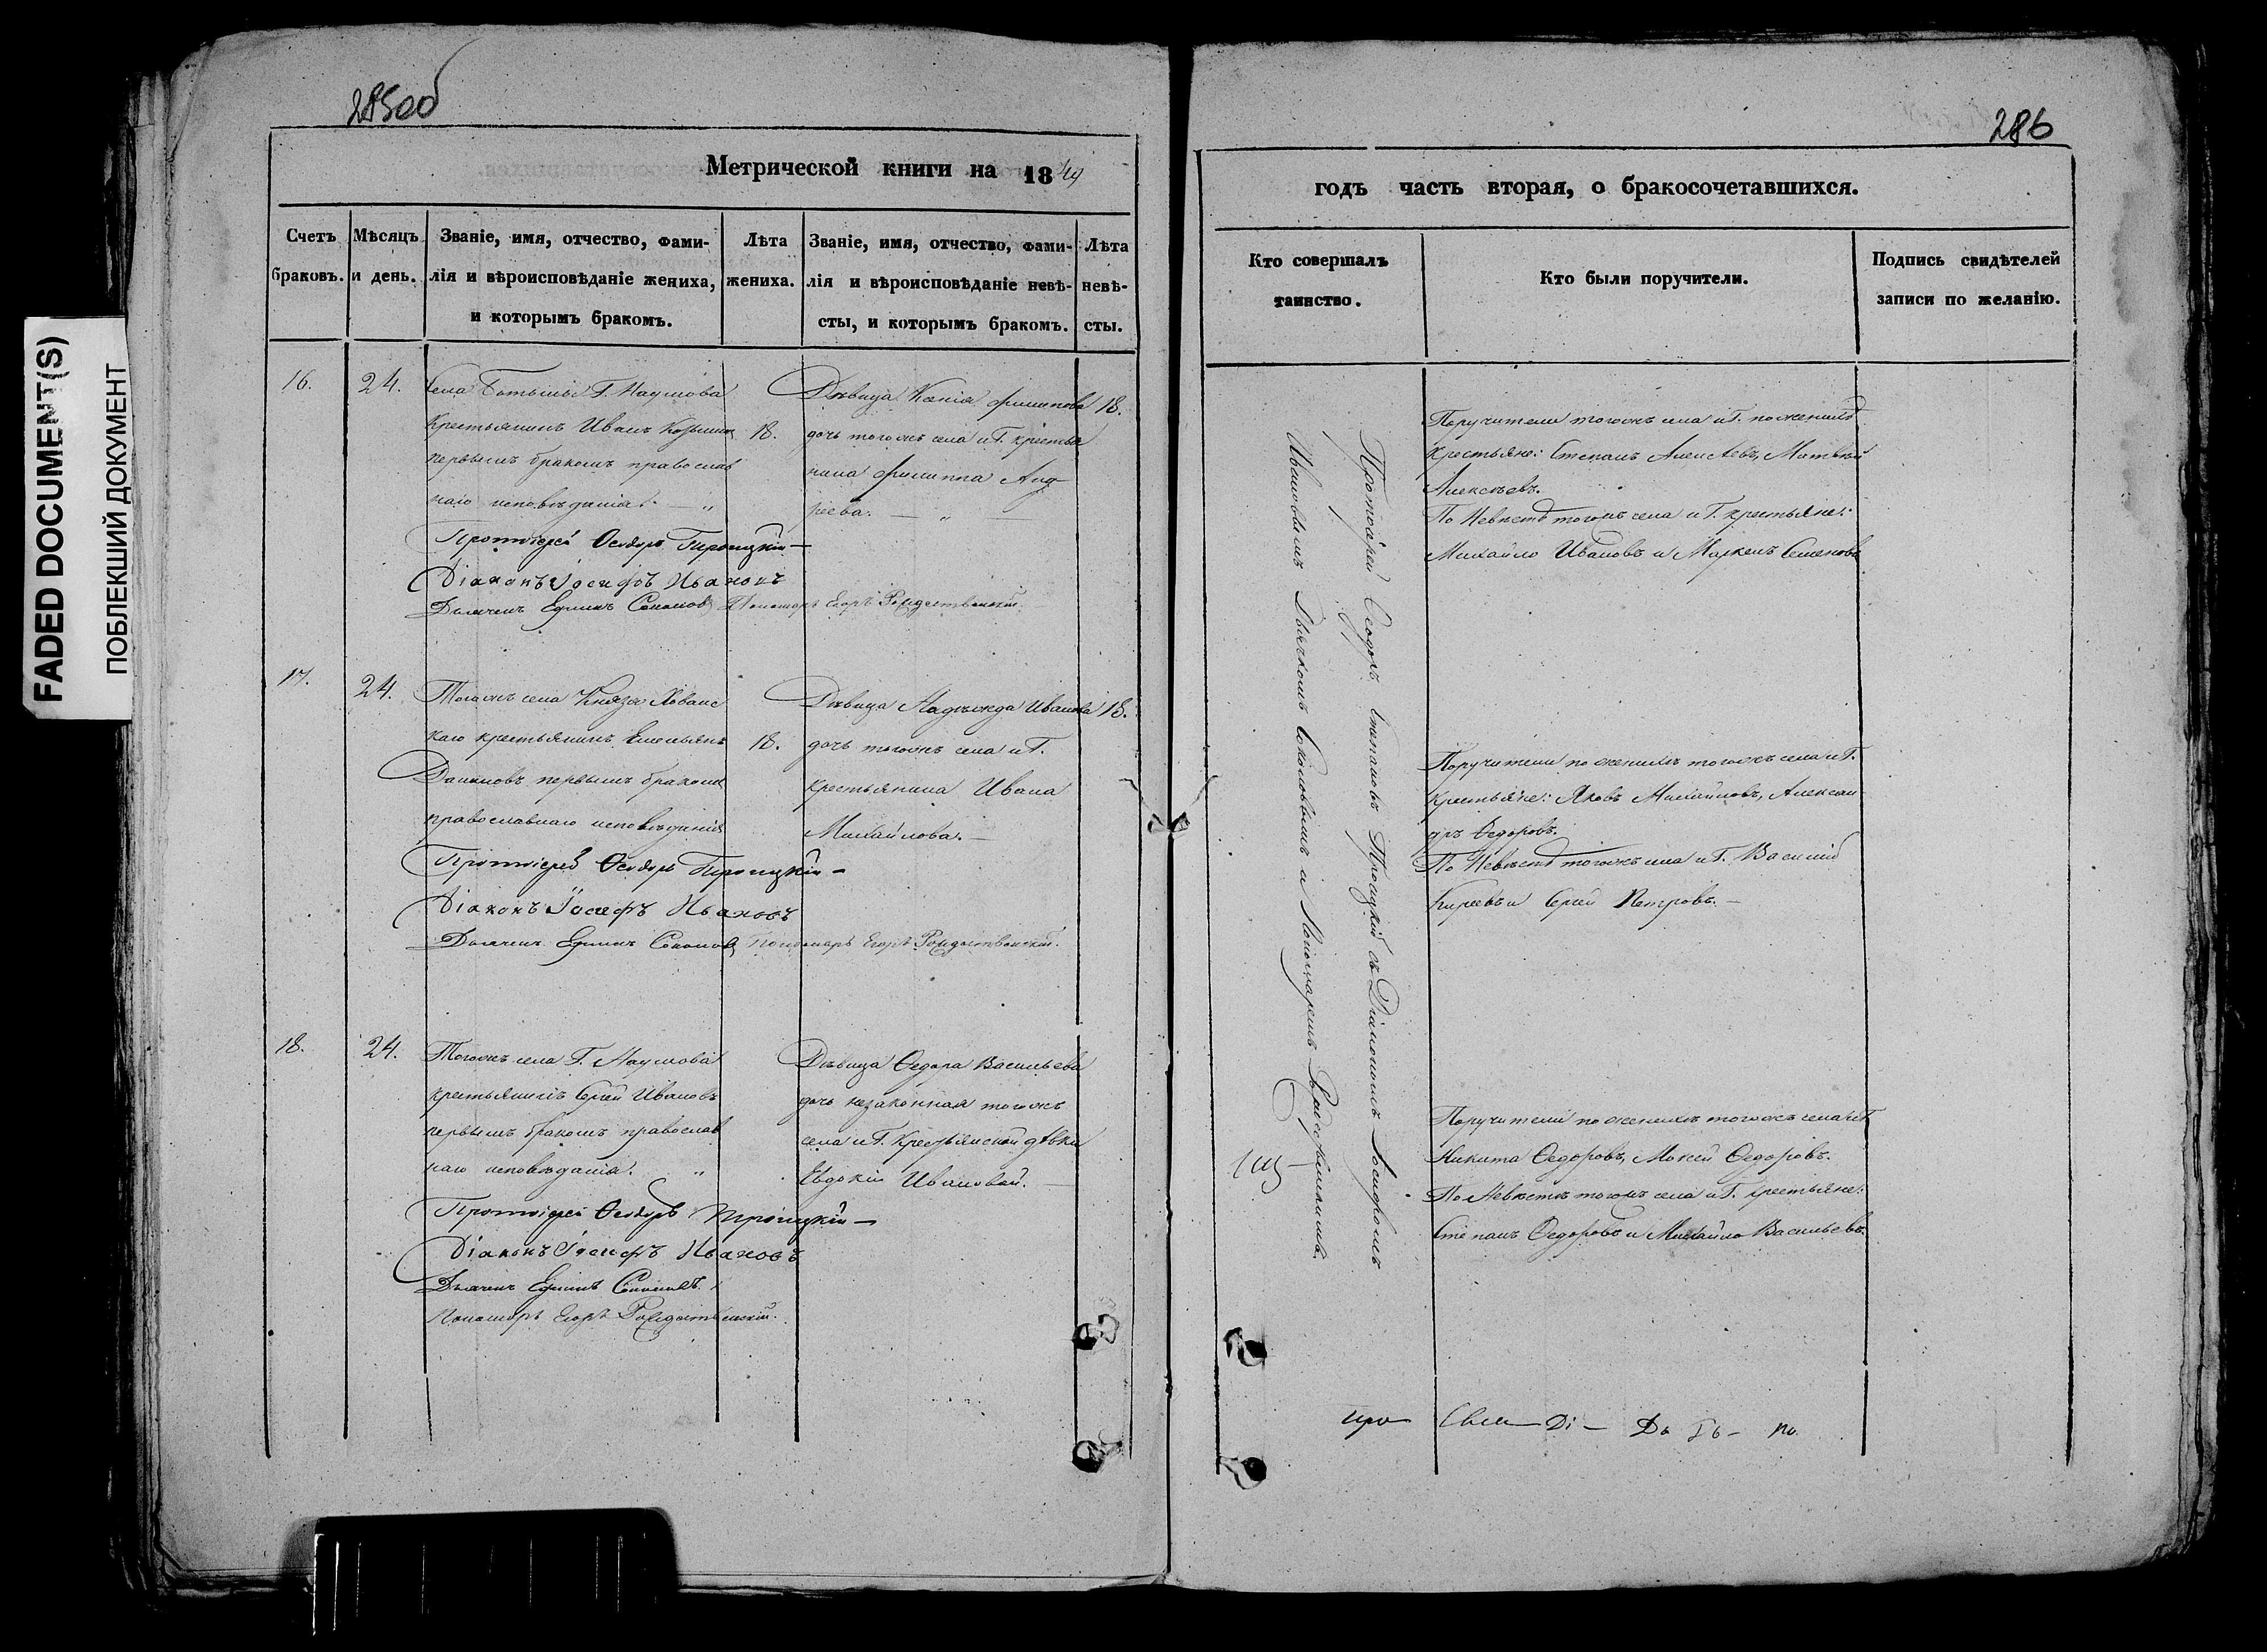 285об
Метрической книги на 1849
Счетъ браковъ.
Мѣсяцъ и день.
Званіе, имя, отчество, фами-
лія и вѣроисповѣданіе жениха,
и которымъ бракомъ.
Лѣта
жениха.
Званіе, имя, отчество, фами-
лія и вѣроисповѣданіе невѣ-
сты, и которымъ бракомъ.
Лѣта
невѣ-
сты.
16.
24.
Села Г. Наумова
крестьянинъ Иванъ Козьминъ
первымъ бракомъ православ
наго исповѣданія. — „
18.
Дѣвица Ксенія Филипова
дочь тогожъ села и Г. крестья
нина Филиппа Анд-
реева. — „ —
18.
Протоіерей Ѳеодоръ Троицкій —
Діаконъ Іосифъ Ивановъ
Дьячекъ Ефимъ Соколовъ Пономарь Егоръ Рождественскій.
17.
24.
Тогожъ села Князя Хованс
каго крестьянинъ Емельянъ
Даниловъ первымъ бракомъ
православнаго исповѣданія
18.
Дѣвица Надежда Иванова
дочь тогожъ села и Г.
крестьянина Ивана
Михайлова. —
18.
Протоіерей Ѳеодоръ Троицкій —
Діаконъ Іосифъ Ивановъ
Дьячекъ Ефимъ Соколовъ Пономарь Егоръ Рождественскій.
18.
24.
Тогожъ села Г. Наумова
крестьянинъ Сергей Ивановъ
первымъ бракомъ православ
наго исповѣданія. „
Дѣвица Ѳедора Васильева
дочь незаконная тогожъ
села и Г. крестьянской дѣвки
Евдокіи Ивановой. —
Протоіерей Ѳеодоръ Троицкій —
Діаконъ Іосифъ Ивановъ
Дьячекъ Ефимъ Соколовъ.
Пономарь Егоръ Рождественскій.
286
годъ часть вторая, о бракосочетавшихся.
Кто совершалъ
таинство.
Кто были поручители.
Подпись свидѣтелей
записи по желанію.
Протоіерей Ѳеодоръ Степановъ Троицкій съ Діакономъ Іосифомъ
Ивановымъ Дьячкомъ Соколовымъ и Пономаремъ Рождественскимъ.
Поручители тогожъ села и Г. по женихѣ
крестьяне: Степанъ Алексѣевъ, Матвѣй
Алексѣевъ.
По Невѣстѣ тогожъ села и Г. крестьяне:
Михайло Ивановъ и Семеновъ
Поручители по женихѣ тогожъ села и Г.
крестьяне: Яковъ Михайловъ, Алексан
дръ Ѳедоровъ.
По Невѣстѣ тогожъ села и Г. Василій
Киреевъ и Сергей Петровъ. —
Поручители по женихѣ тогожъ села и Г.
Никита Ѳедоровъ, Мокей Ѳедоровъ.
По Невѣстѣ тогожъ села и Г. крестьяне:
Степанъ Ѳедоровъ и Михайло Васильевъ.
Ді — По
FADED DOCUMENT(S)
ПОБЛЕКШИЙ ДОКУМЕНТ